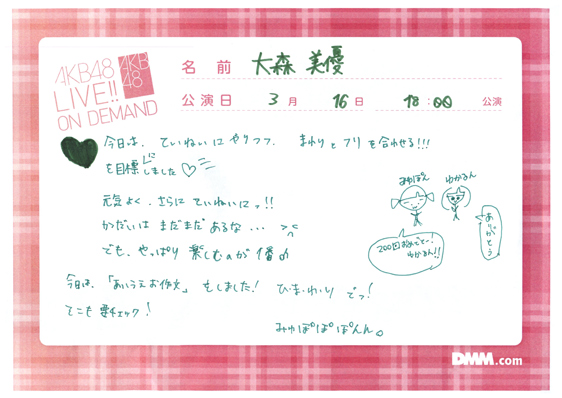 AKB48
LIVE!!
ON DEMAND
AKB
48
名前 大森美優
公演日 3月 16日 18:00 公演
今日は、ていねいにやりつつ、まわりとフリを合わせる!!!
を目標にしました♡
元気よく、さらにていねいにっ!!
かだいはまだまだあるな...
でも、やっぱり楽しむのが1番♪
みゆぽん
わかるん
200回おめでとー!
わかるん!!
ありがとう
今日は、「あいうえお作文」をしました! ひ・ま・わ・り でっ!
そこも要チェック!
みゆぽぽぽんん。
DMM.com